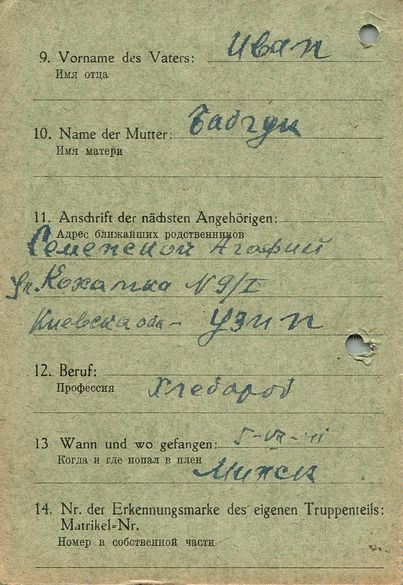 9. Vorname des Vaters: Иван
Имя отца
10. Name der Mutter: Бабчук
Имя матери
11. Anschrift der nächsten Angehörigen:
Адрес ближайших родственников
Семенской Агафий
ул. Кохапка N 9/I
Киевска обл- Узин
12. Beruf:
Профессия Хлебороб
13 Wann und wo gefangen: 5-VII-41
Когда и где попал в плен
Минск
14. Nr. der Erkennungsmarke des eigenen Truppenteils:
Matrikel-Nr.
Номер в собственной части